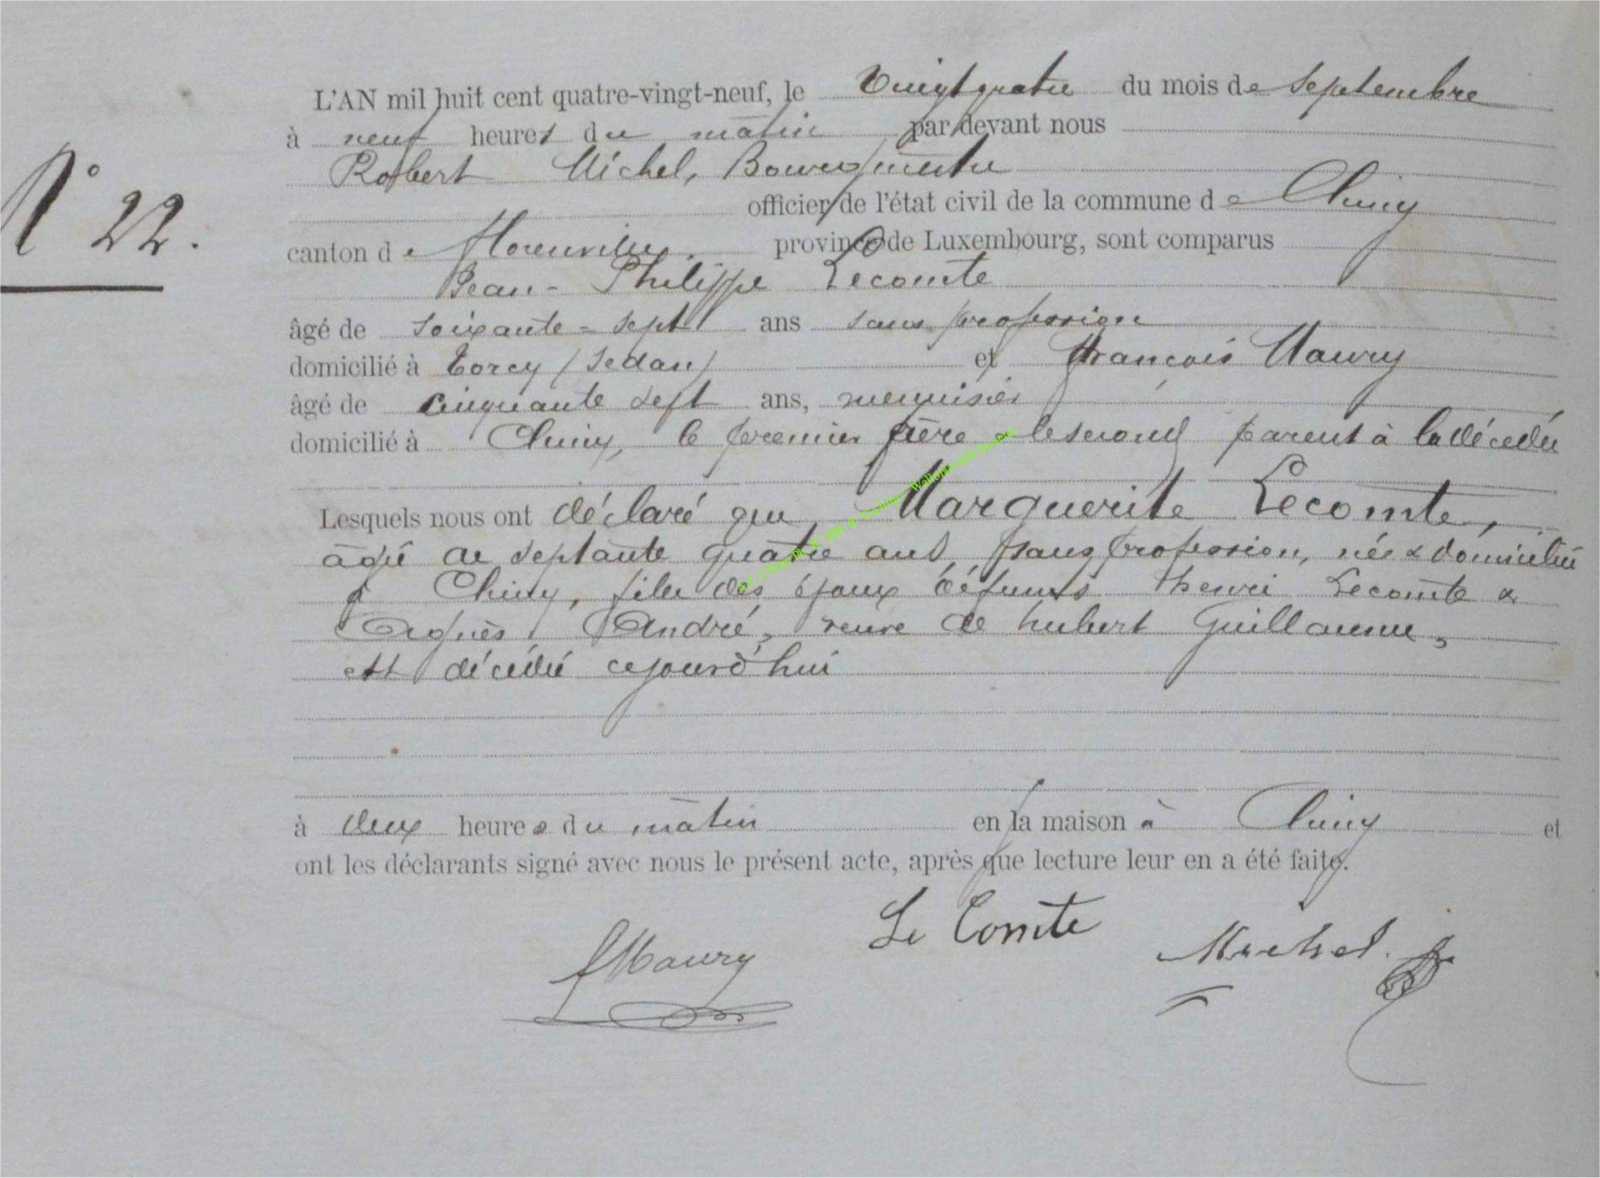 L'AN mil huit cent quatre-vingt-neuf, le vingt quatre du mois de Septembre
à neuf heures du matin par devant nous
Robert Michel, Bourgmestre
officier de l'état civil de la commune de Chiny
N° 22.
canton de Florenville, province de Luxembourg, sont comparus
Jean-Philippe Lecomte
âgé de soixante-sept ans sans profession
domicilié à Torcy (Sedan) et François Maury
âgé de cinquante sept ans, menuisier
domicilié à Chiny, le premier frère & le second parent à la décédée
Lesquels nous ont déclaré que Marguerite Lecomte,
âgée de septante quatre ans, sans profession, née & domiciliée
à Chiny, fille des époux défunts henri Lecomte &
Agnès André, veuve de hubert Guillaume,
est décédée cejourd'hui
à deux heures du matin en la maison à Chiny et
ont les déclarants signé avec nous le présent acte, après que lecture leur en a été faite.
Le Comte
FMaury
Michel